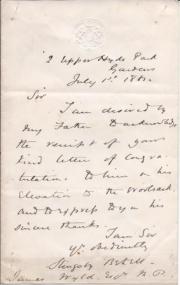 2 Upper Hyde Park
Gardens
July 1st 1861.
Sir
I am desired by
my Father to acknowledge
the receipt of your
kind letter of congra-
tulations to him on his
Elevation to the Woolsack
and to express to you his
sincere thanks.
I am Sir
Yr. Obediently
Slingsby Bethell
James Wyld Esqre M.P.